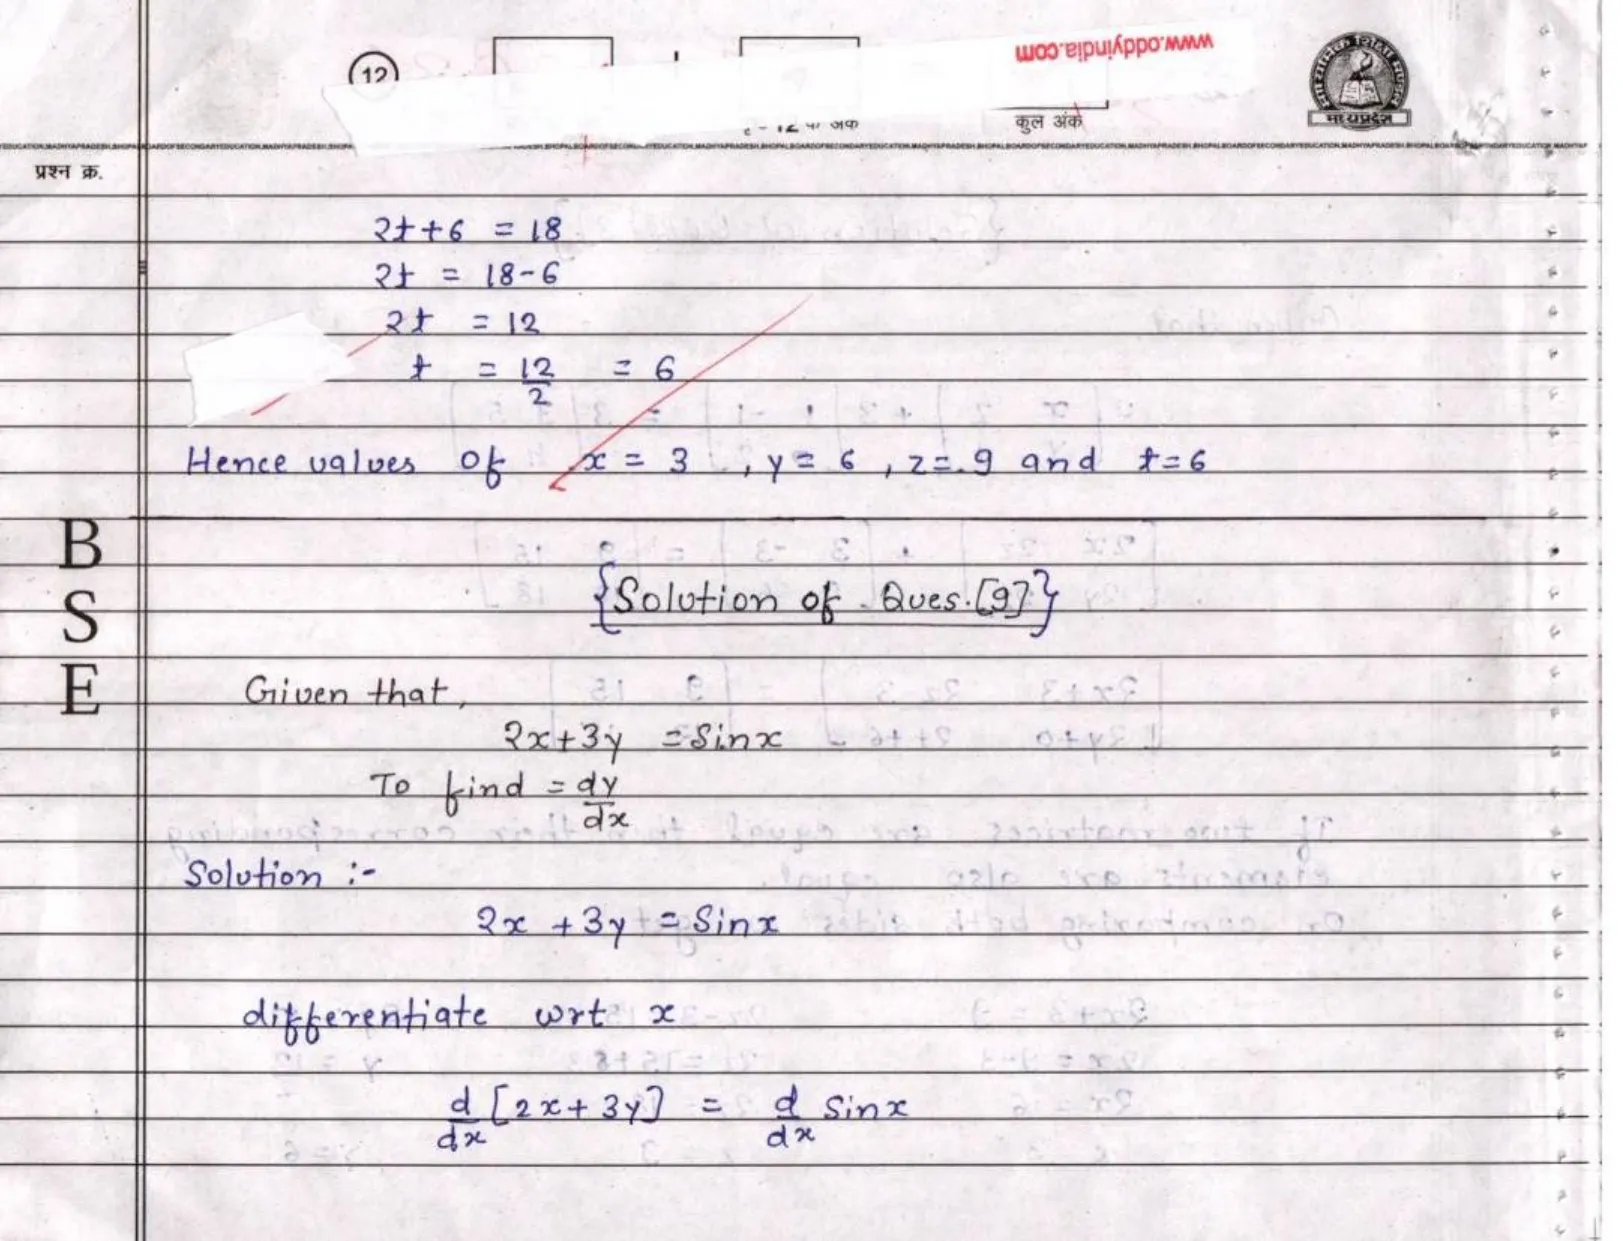 12
www.oddyindia.com
कुल अंक
माध्यमिक शिक्षा मण्डल
मध्यप्रदेश
प्रश्न क्र.
2t+6 = 18
2t = 18-6
2t = 12
t = 12/2 = 6
Hence values of x = 3 , y = 6 , z = 9 and t=6
BSE
{Solution of Ques.[9]}
Given that,
2x+3y = Sinx
To find = dy/dx
Solution :-
2x +3y = Sinx
differentiate wrt x
d/dx [2x+ 3y] = d/dx Sinx